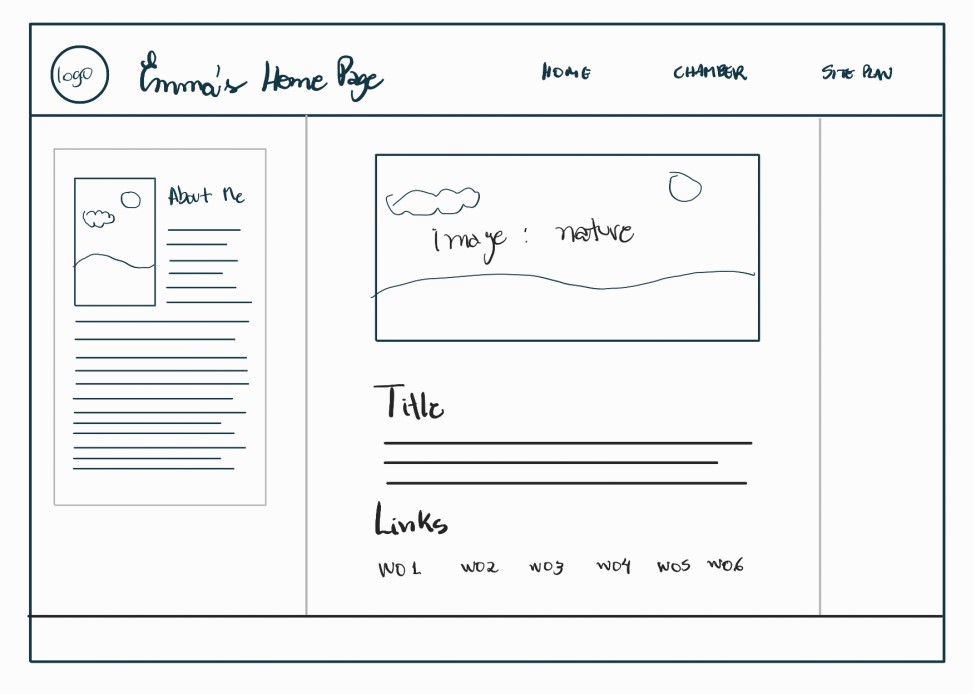 logo
Emma's Home Page
HOME
CHAMBER
SITE PLAN
About Me
image : nature
Title
Links
W01 W02 W03 W04 W05 W06